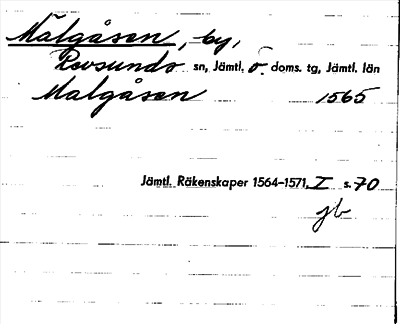 Mälgåsen, by,
Revsunds sn, Jämtl. ö. doms. tg, Jämtl. län
Malgåsen 1565
Jämtl. Räkenskaper 1564–1571, I s. 70
jb